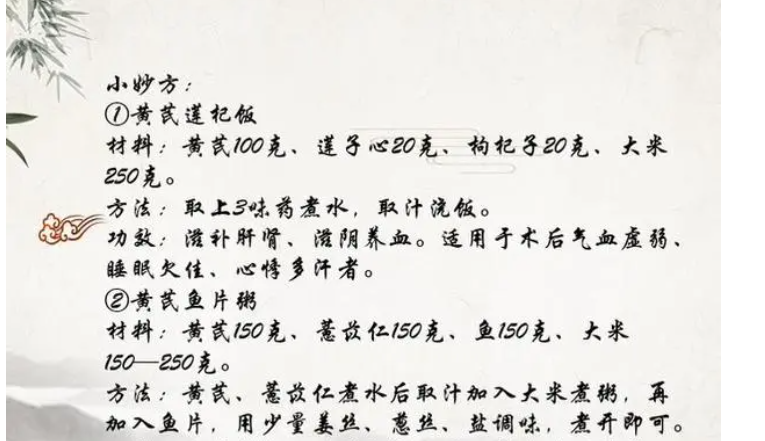 小妙方：
①黄芪莲杞饭
材料：黄芪100克、莲子心20克、枸杞子20克、大米
250克。
方法：取上3味药煮水，取汁浇饭。
功效：滋补肝肾、滋阴养血。适用于术后气血虚弱、
睡眠欠佳、心悸多汗者。
②黄芪鱼片粥
材料：黄芪150克、薏苡仁150克、鱼150克、大米
150—250克。
方法：黄芪、薏苡仁煮水后取汁加入大米煮粥，再
加入鱼片，用少量姜丝、葱丝、盐调味，煮开即可。